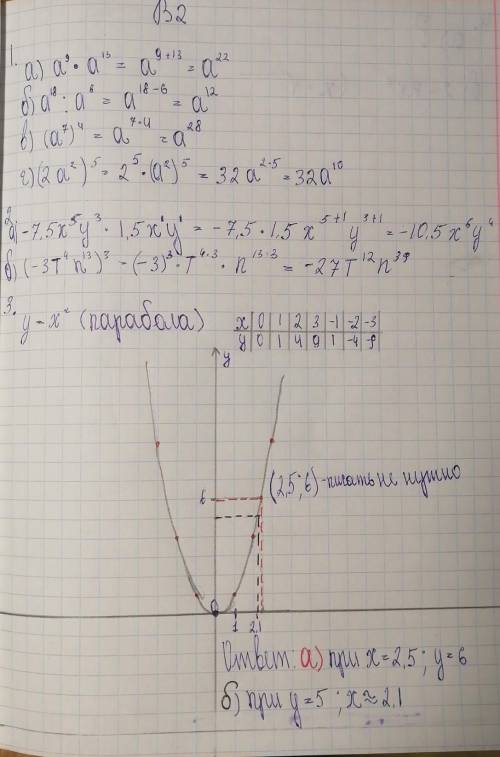 В2
1. а) a⁹ · a¹³ = a⁹⁺¹³ = a²²
б) a¹⁸ : a⁶ = a¹⁸⁻⁶ = a¹²
в) (a⁷)⁴ = a⁷·⁴ = a²⁸
г) (2a²)⁵ = 2⁵ · (a²)⁵ = 32a²·⁵ = 32a¹⁰
2. а) -7,5x⁵y³ · 1,5x¹y¹ = -7,5·1.5 x⁵⁺¹ y³⁺¹ = -10.5x⁶y⁴
б) (-3т⁴n¹³)³ - (-3)³·т⁴·³ · n¹³·³ = -27т¹²n³⁹
3.
y = x² (парабола)
x | 0 | 1 | 2 | 3 | -1 | -2 | -3
y | 0 | 1 | 4 | 9 | 1 | -4 | -9
y
6
(2,5; 6) - писать не нужно
0
1 2,1
Ответ: а) при x = 2,5 ; y = 6
б) при y = 5 ; x ≈ 2,1